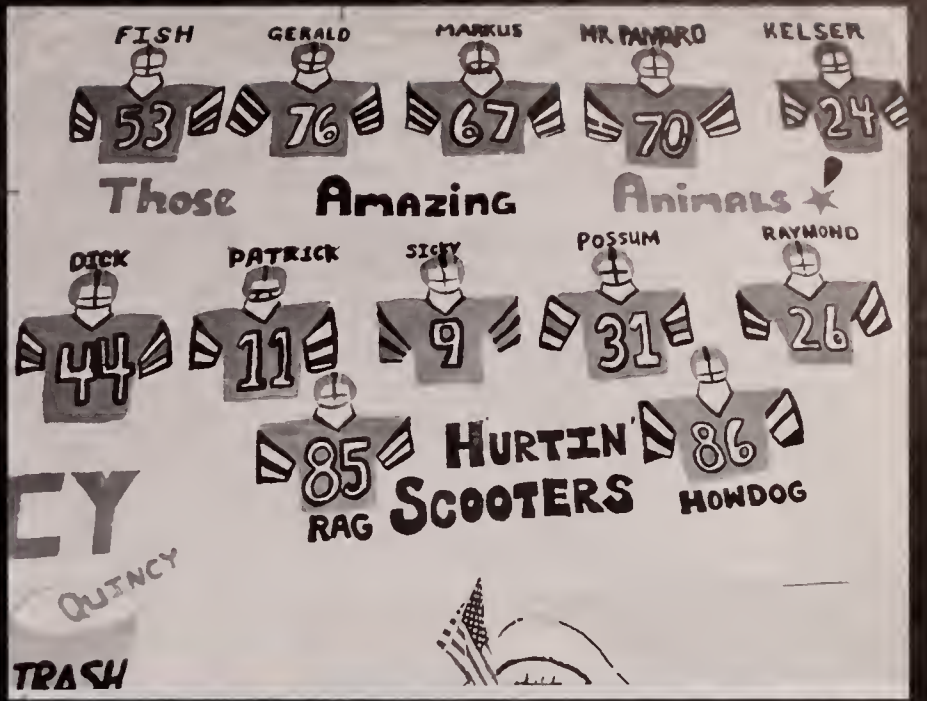 FISH GERALD MARKUS MR PANARO KELSER
53 76 67 70 24
Those Amazing Animals!
DICK PATRICK SICKY POSSUM RAYMOND
44 11 9 31 26
85 HURTIN' 86
RAG SCOOTERS HOWDOG
CY
QUINCY
TRASH